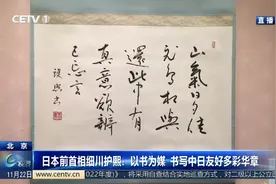 直播
山氣日夕佳
飛鳥相與
還此中有
真意欲辨
已忘言
護熙
北京
日本前首相细川护熙：以书为媒 书写中日友好多彩华章
11月22日
022年度）》，将采用自查结合实地巡查方式，对二级以上公